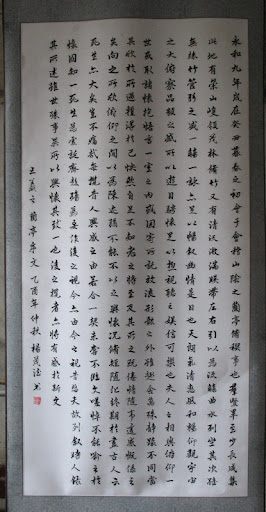 永和九年歲在癸丑暮春之初會于會稽山陰之蘭亭脩禊事也群賢畢至少長咸集
此地有崇山峻領茂林脩竹又有清流激湍暎帶左右引以為流觴曲水列坐其次雖
無絲竹管弦之盛一觴一詠亦足以暢敘幽情是日也天朗氣清惠風和暢仰觀宇宙
之大俯察品類之盛所以遊目騁懷足以極視聽之娛信可樂也夫人之相與俯仰一
世或取諸懷抱悟言一室之內或因寄所託放浪形骸之外雖趣舍萬殊靜躁不同當
其欣於所遇暫得於己快然自足不知老之將至及其所之既惓情隨事遷感慨係之
矣向之所欣俛仰之間以為陳迹猶不能不以之興懷況脩短隨化終期於盡古人云
死生亦大矣豈不痛哉每攬昔人興感之由若合一契未嘗不臨文嗟悼不能喻之於
懷固知一死生為虛誕齊彭殤為妄作後之視今亦由今之視昔悲夫故列敘時人錄
其所述雖世殊事異所以興懷其致一也後之攬者亦將有感於斯文
王羲之蘭亭序文 乙酉年仲秋 楊茂 書